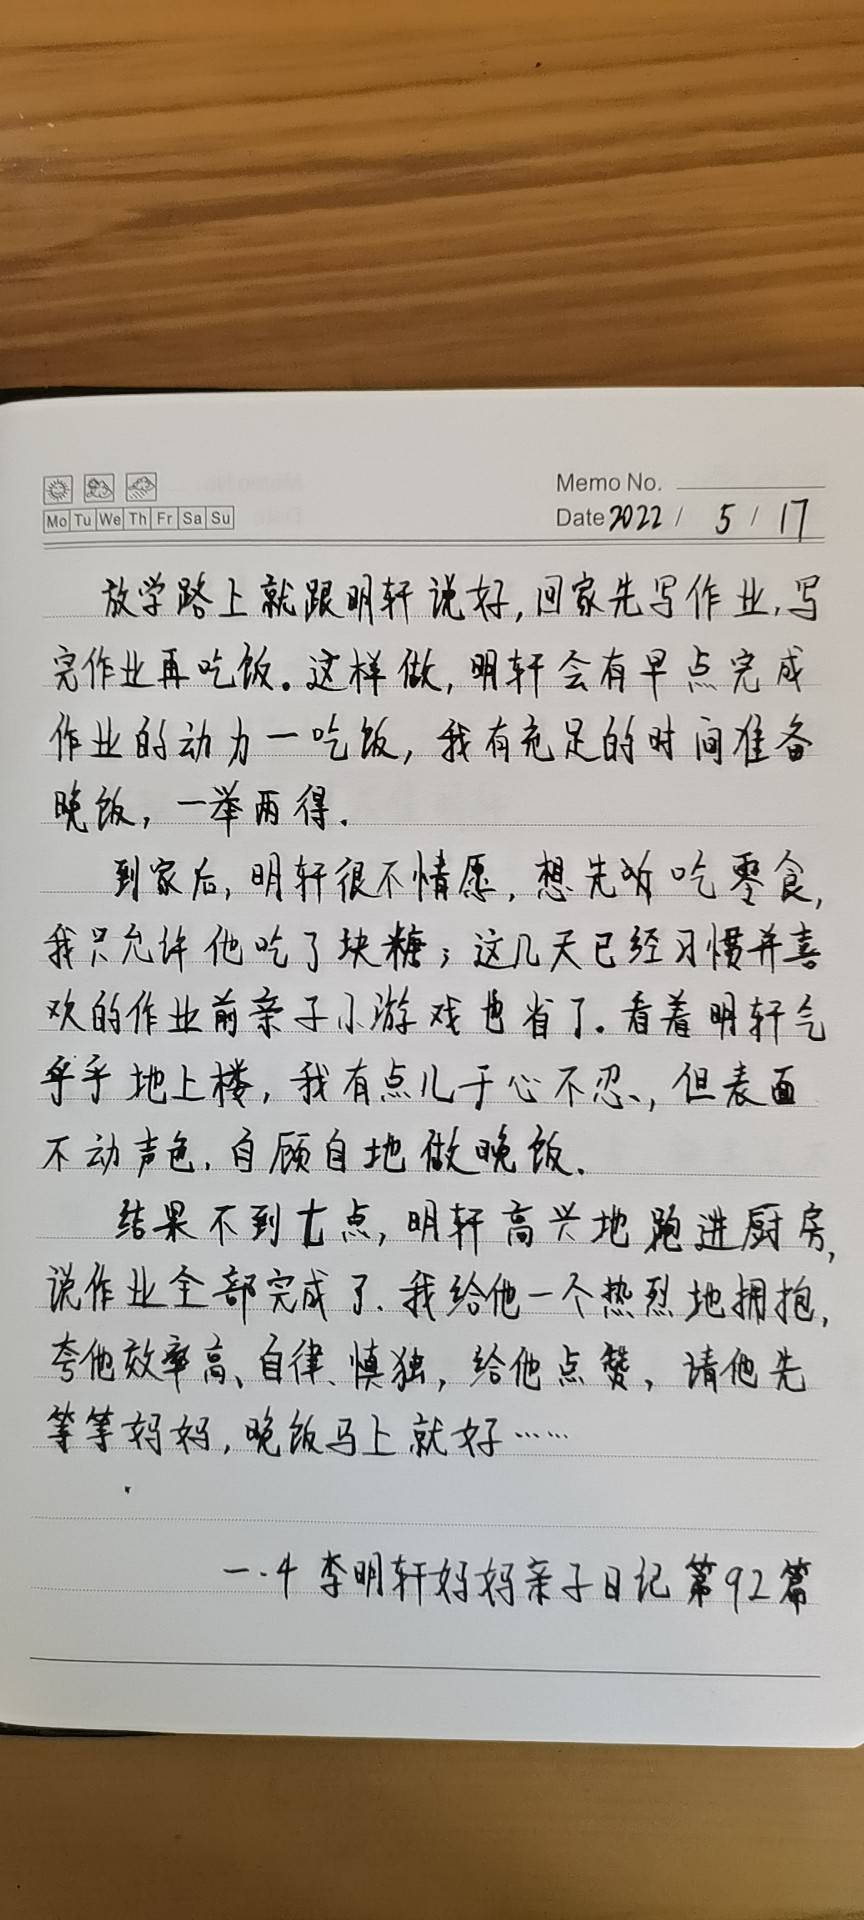 Memo No.
Mo Tu We Th Fr Sa Su
Date 2022 / 5 / 17
放学路上就跟明轩说好,回家先写作业,写
完作业再吃饭。这样做,明轩会有早点完成
作业的动力一吃饭,我有充足的时间准备
晚饭,一举两得.
到家后,明轩很不情愿,想先听吃零食,
我只允许他吃了块糖;这几天已经习惯并喜
欢的作业前亲子小游戏也省了.看着明轩气
乎乎地上楼,我有点儿于心不忍,但表面
不动声色,自顾自地做晚饭.
结果不到七点,明轩高兴地跑进厨房,
说作业全部完成了.我给他一个热烈地拥抱,
夸他效率高、自律、慎独,给他点赞,请他先
等等妈妈,晚饭马上就好……
一.4 李明轩妈妈亲子日记第92篇